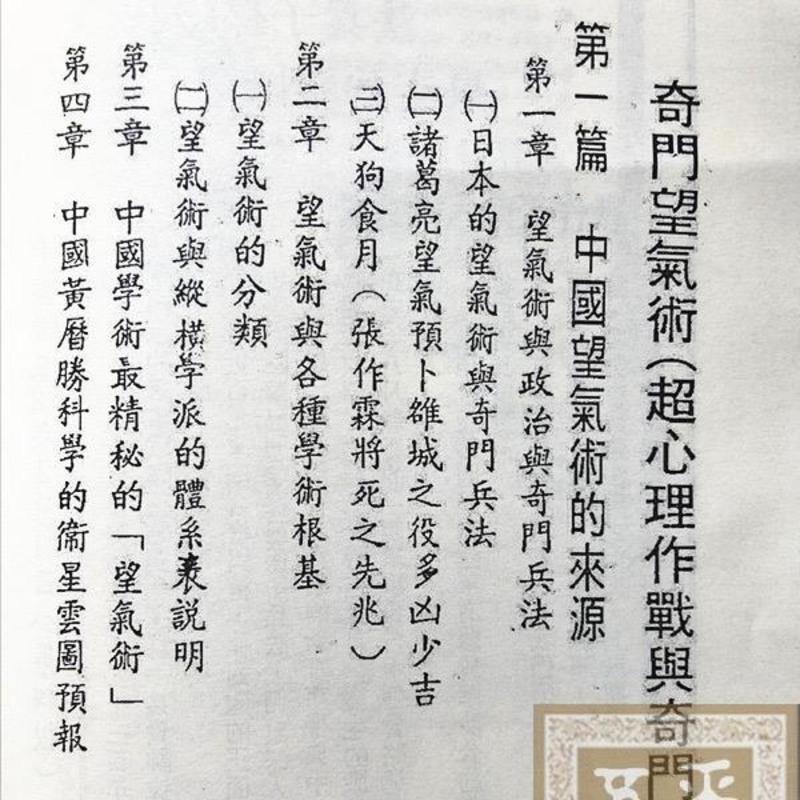 奇門望氣術(超心理作戰與奇門
第一篇 中國望氣術的來源
第一章 望氣術與政治與奇門兵法
㈠日本的望氣術與奇門兵法
㈡諸葛亮望氣預卜雒城之役多凶少吉
㈢天狗食月(張作霖將死之先兆)
第二章 望氣術與各種學術根基
㈠望氣術的分類
㈡望氣術與縱橫學派的體系表說明
第三章 中國學術最精秘的「望氣術」
第四章 中國黃曆勝科學的衞星雲圖預報